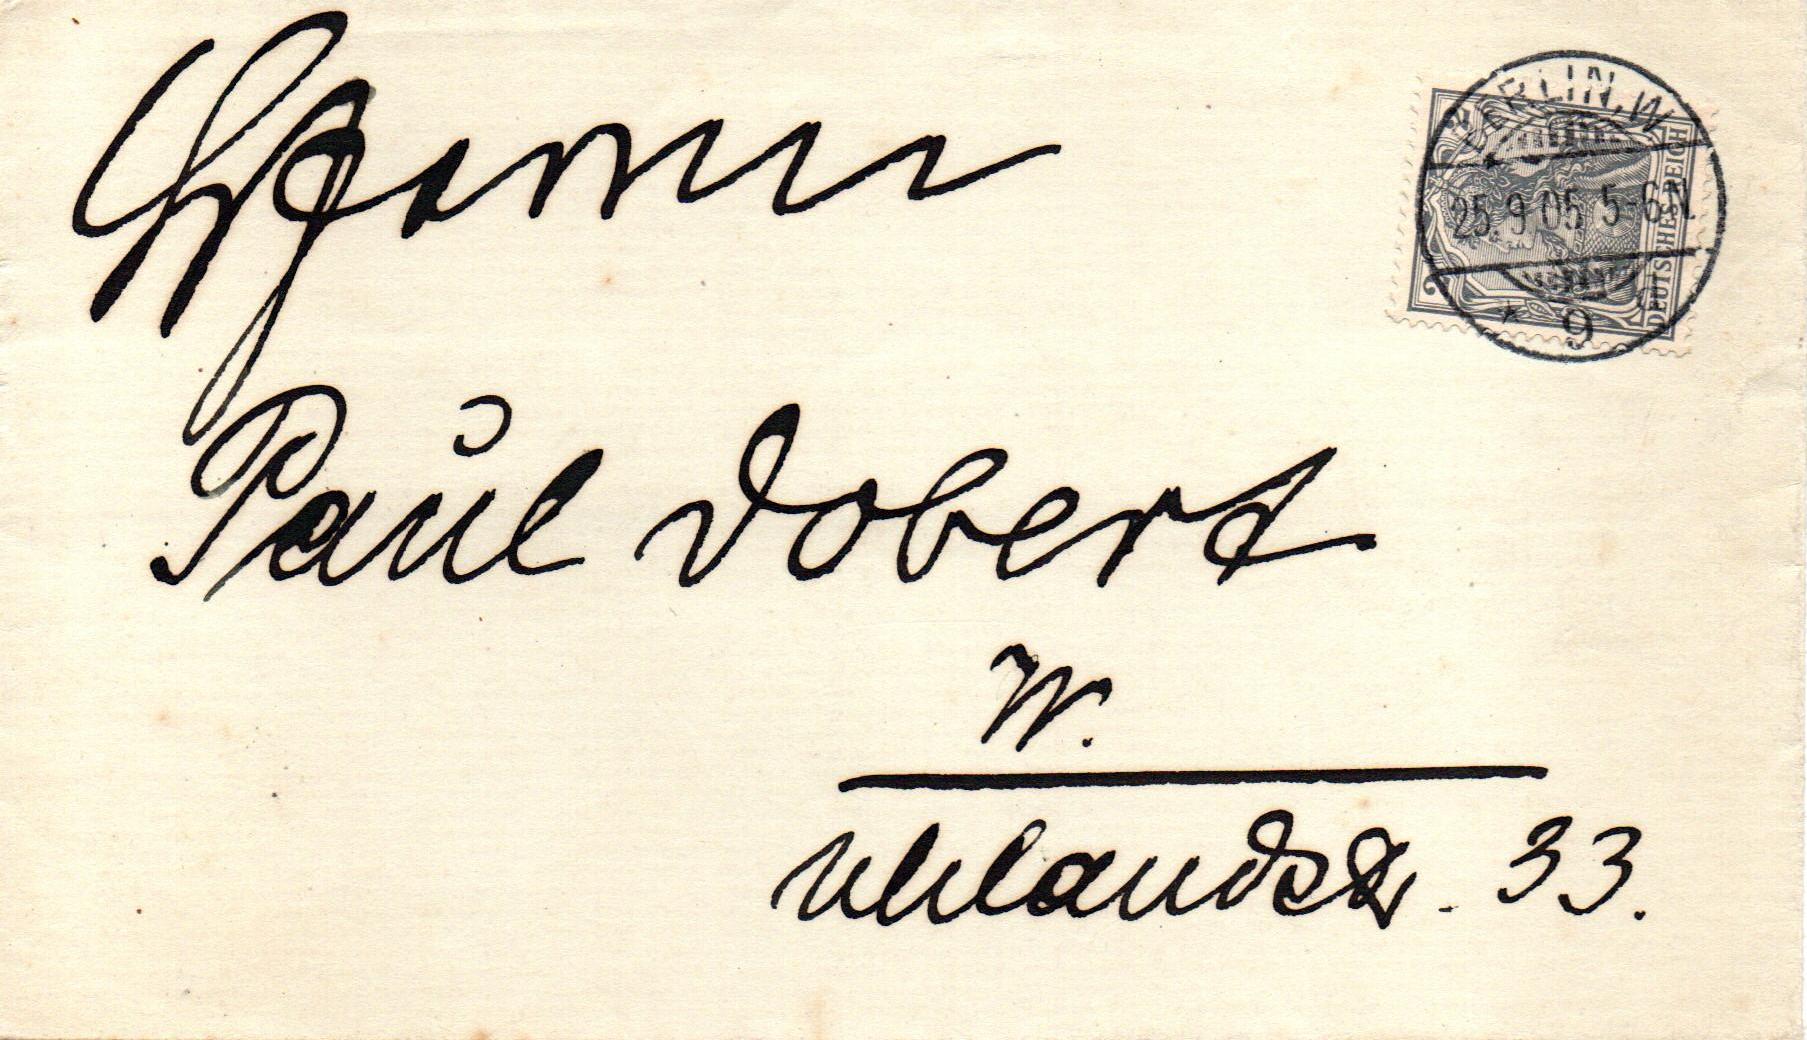 Herrn
BERLIN.W.
25.9.05 5-6N.
* 9
2
DEUTSCHES REICH
Paul Dobert
W.
Uhlandstr. 33.